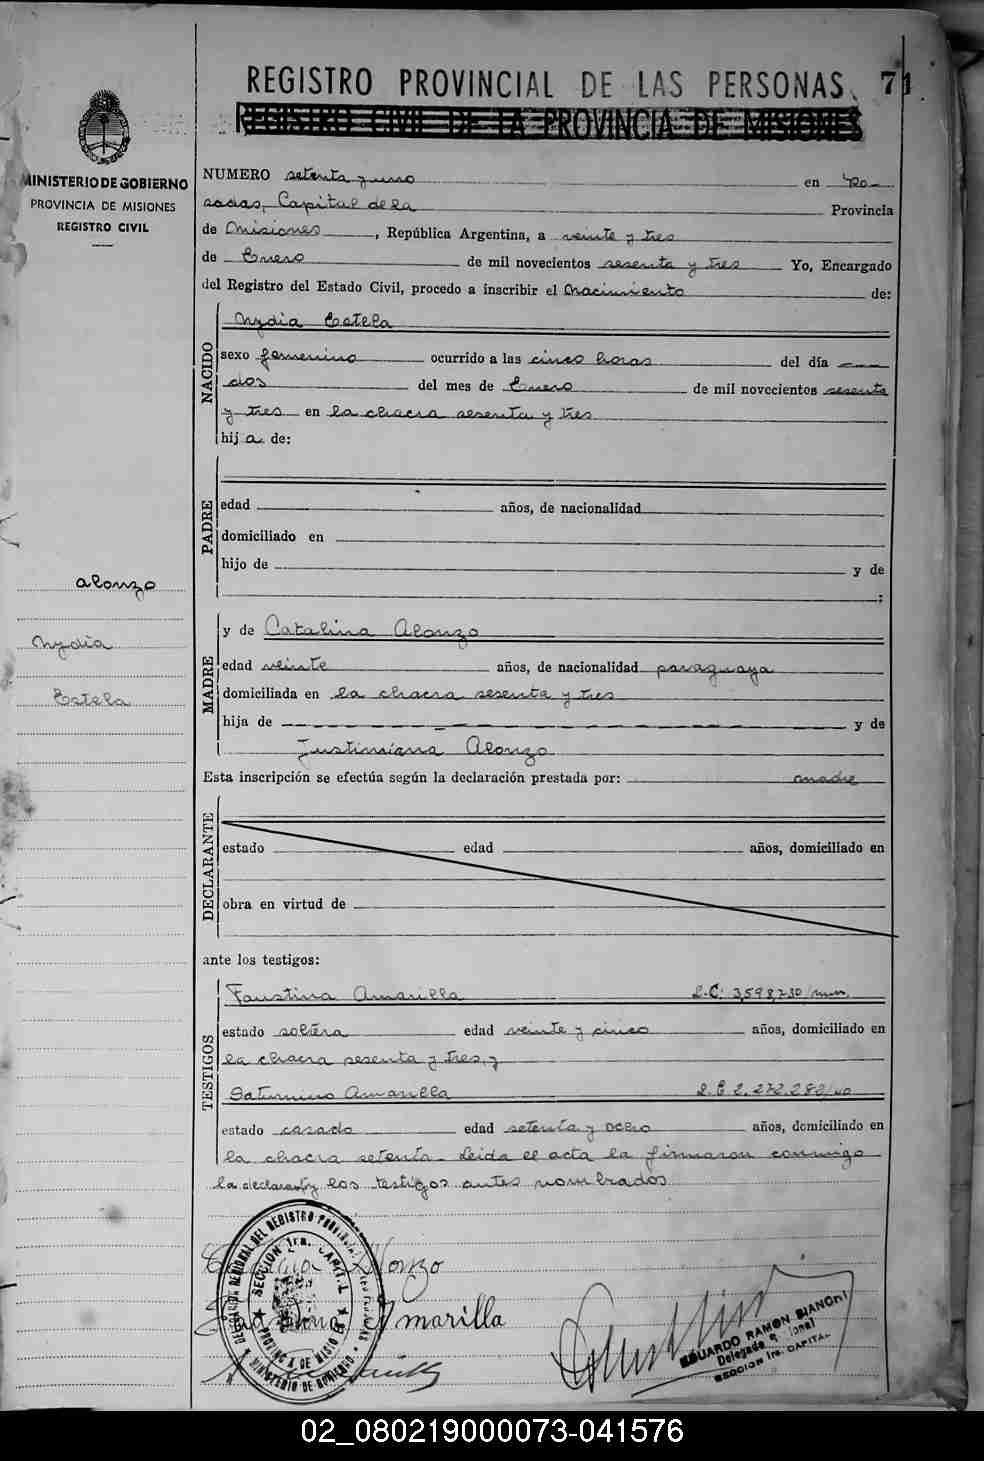 REGISTRO PROVINCIAL DE LAS PERSONAS. 71
REGISTRO CIVIL DE LA PROVINCIA DE MISIONES
MINISTERIO DE GOBIERNO
PROVINCIA DE MISIONES
REGISTRO CIVIL
NUMERO setenta y uno en Po-
sadas, Capital de la Provincia
de Misiones, República Argentina, a veinte y tres
de Enero de mil novecientos sesenta y tres Yo, Encargado
del Registro del Estado Civil, procedo a inscribir el Nacimiento de:
NACIDO
Nydia Estela
sexo femenino ocurrido a las cinco horas del día
dos del mes de Enero de mil novecientos sesenta
y tres en la chacra sesenta y tres
hij a de:
PADRE
edad años, de nacionalidad
domiciliado en
hijo de y de
;
Alonzo
Nydia
Estela
MADRE
y de Catalina Alonzo
edad veinte años, de nacionalidad paraguaya
domiciliada en la chacra sesenta y tres
hija de y de
Justiniana Alonzo
Esta inscripción se efectúa según la declaración prestada por: madre
DECLARANTE
estado edad años, domiciliado en
obra en virtud de
ante los testigos:
TESTIGOS
Faustina Amarilla L.C. 3,598,730
estado soltera edad veinte y cinco años, domiciliado en
la chacra sesenta y tres, y
Saturnino Amarilla L.E 2.272.282
estado casado edad setenta y ocho años, domiciliado en
la chacra setenta - Leida el acta la firmaron conmigo
la declarante y los testigos antes nombrados
DELEGACION REGIONAL DEL REGISTRO PROVINCIAL DE LAS PERSONAS
SECCION 1ra. CAPITAL
PROVINCIA DE MISIONES
MINISTERIO DE GOBIERNO
Alonzo
Amarilla
EDUARDO RAMON BIANCHI
Delegado Regional
SECCION 1ra. CAPITAL
02_080219000073-041576